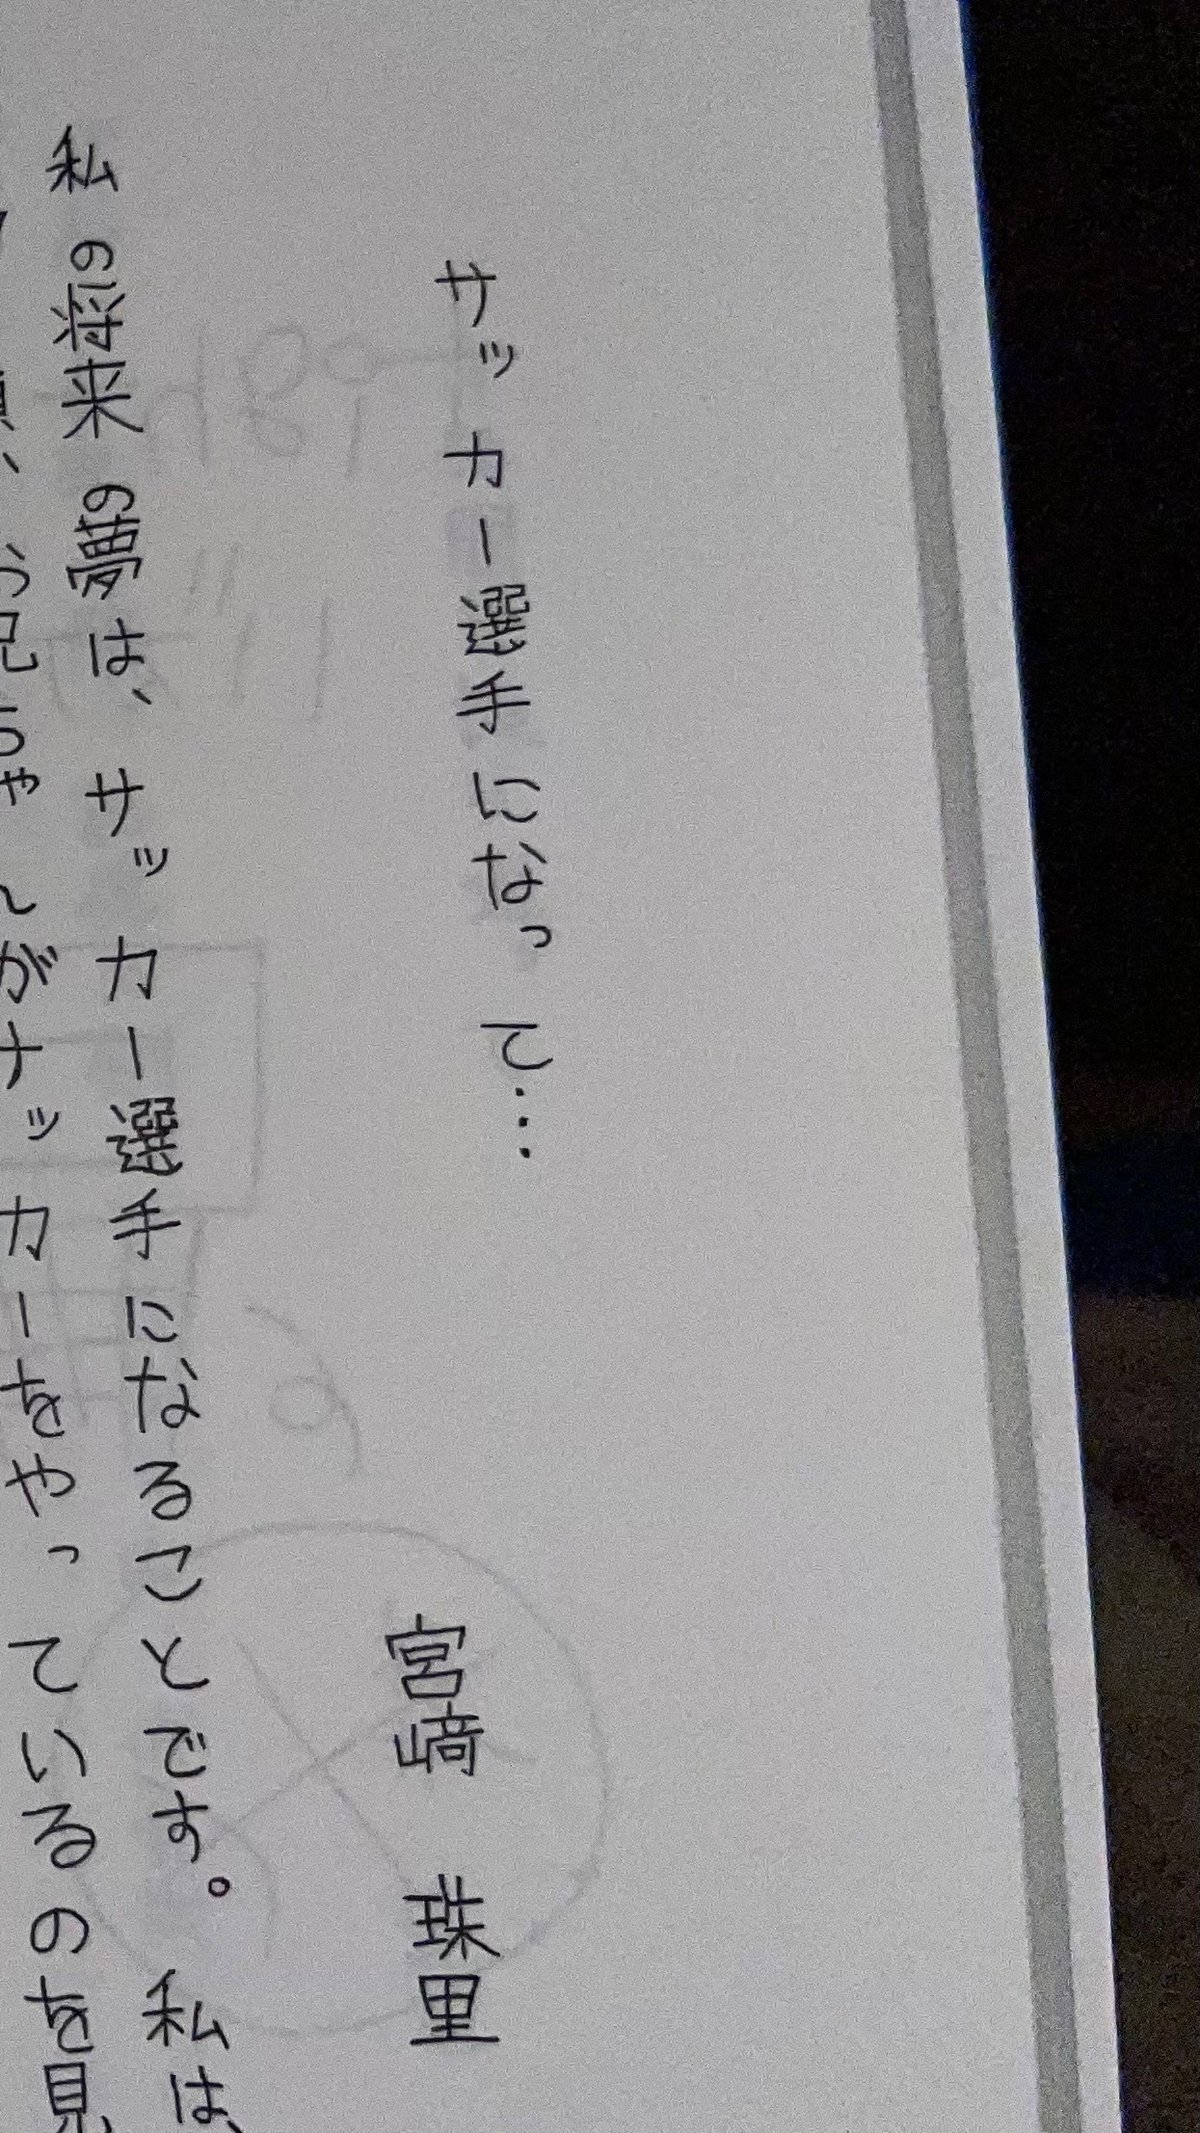 サッカー選手になって…
宮﨑 珠里
私の将来の夢は、サッカー選手になることです。私は、
お兄ちゃんがサッカーをやっているのを見